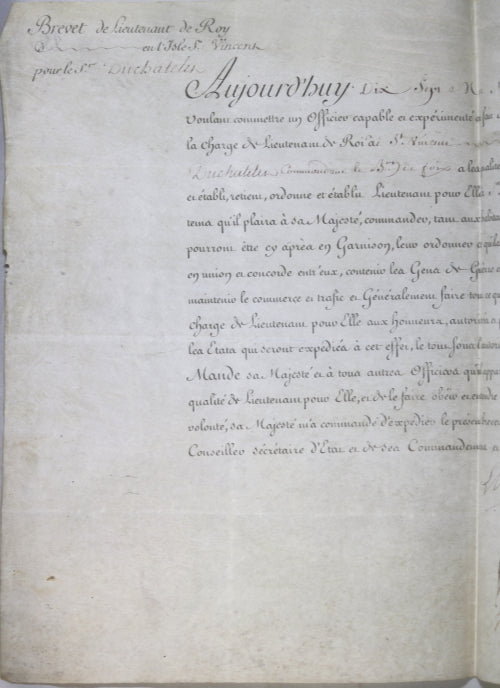 Brevet de Lieutenant de Roy
en l'Isle St. Vincent
pour le Sr. Duchatelet
Aujourd'huy Dix Sept
Voulant commettre un Officier capable et expérimenté
la charge de Lieutenant de Roi à St. Vincent
Duchatelet Commandant a les
et établi, retient, ordonne et établit Lieutenant pour Elle
tems qu'il plaira à sa Majesté, commander, tant aux
pourront être cy après en Garnison, leur ordonner
en union et concorde entr'eux, contenir les Gens de Guerre
maintenir le commerce et trafic et Généralement faire tout ce
charge de Lieutenant pour Elle aux honneurs, autorités
les Etats qui seront expédiés à cet effet, le tout sous
Mande sa Majesté et à tous autres Officiers qu'il
qualité de Lieutenant pour Elle, et de le faire obéir et
volonté, sa Majesté m'a commandé d'expédier le présent
Conseiller sécrétaire d'Etat et de ses Commandemens